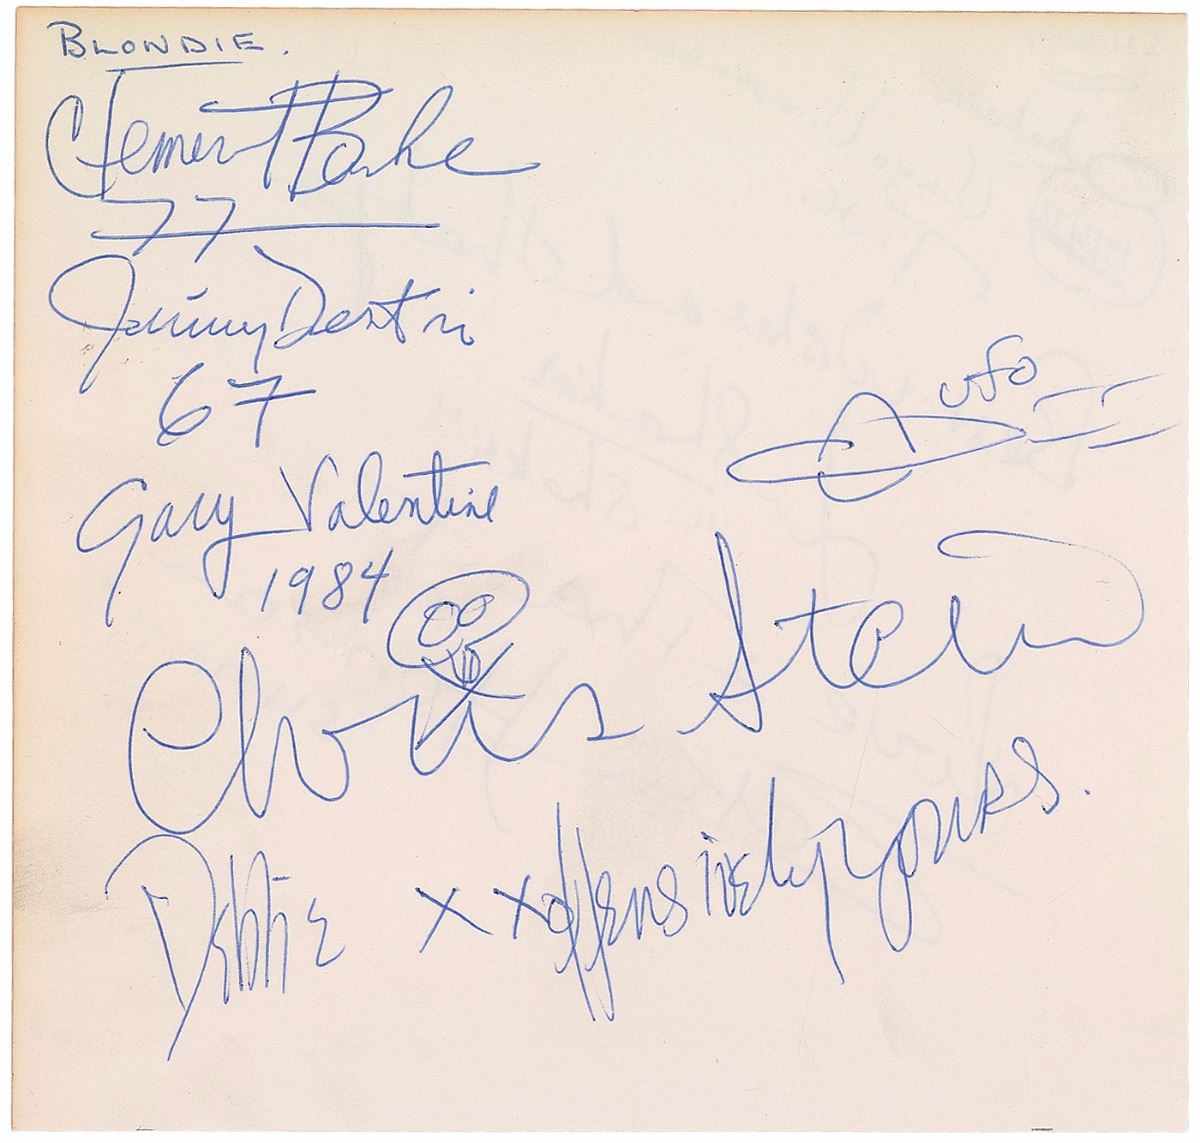 BLONDIE.
Clement Burke
77
Jimmy Destri
67
Gary Valentine
1984
UFO
Chris Stein
Debbie xx offensively yours.